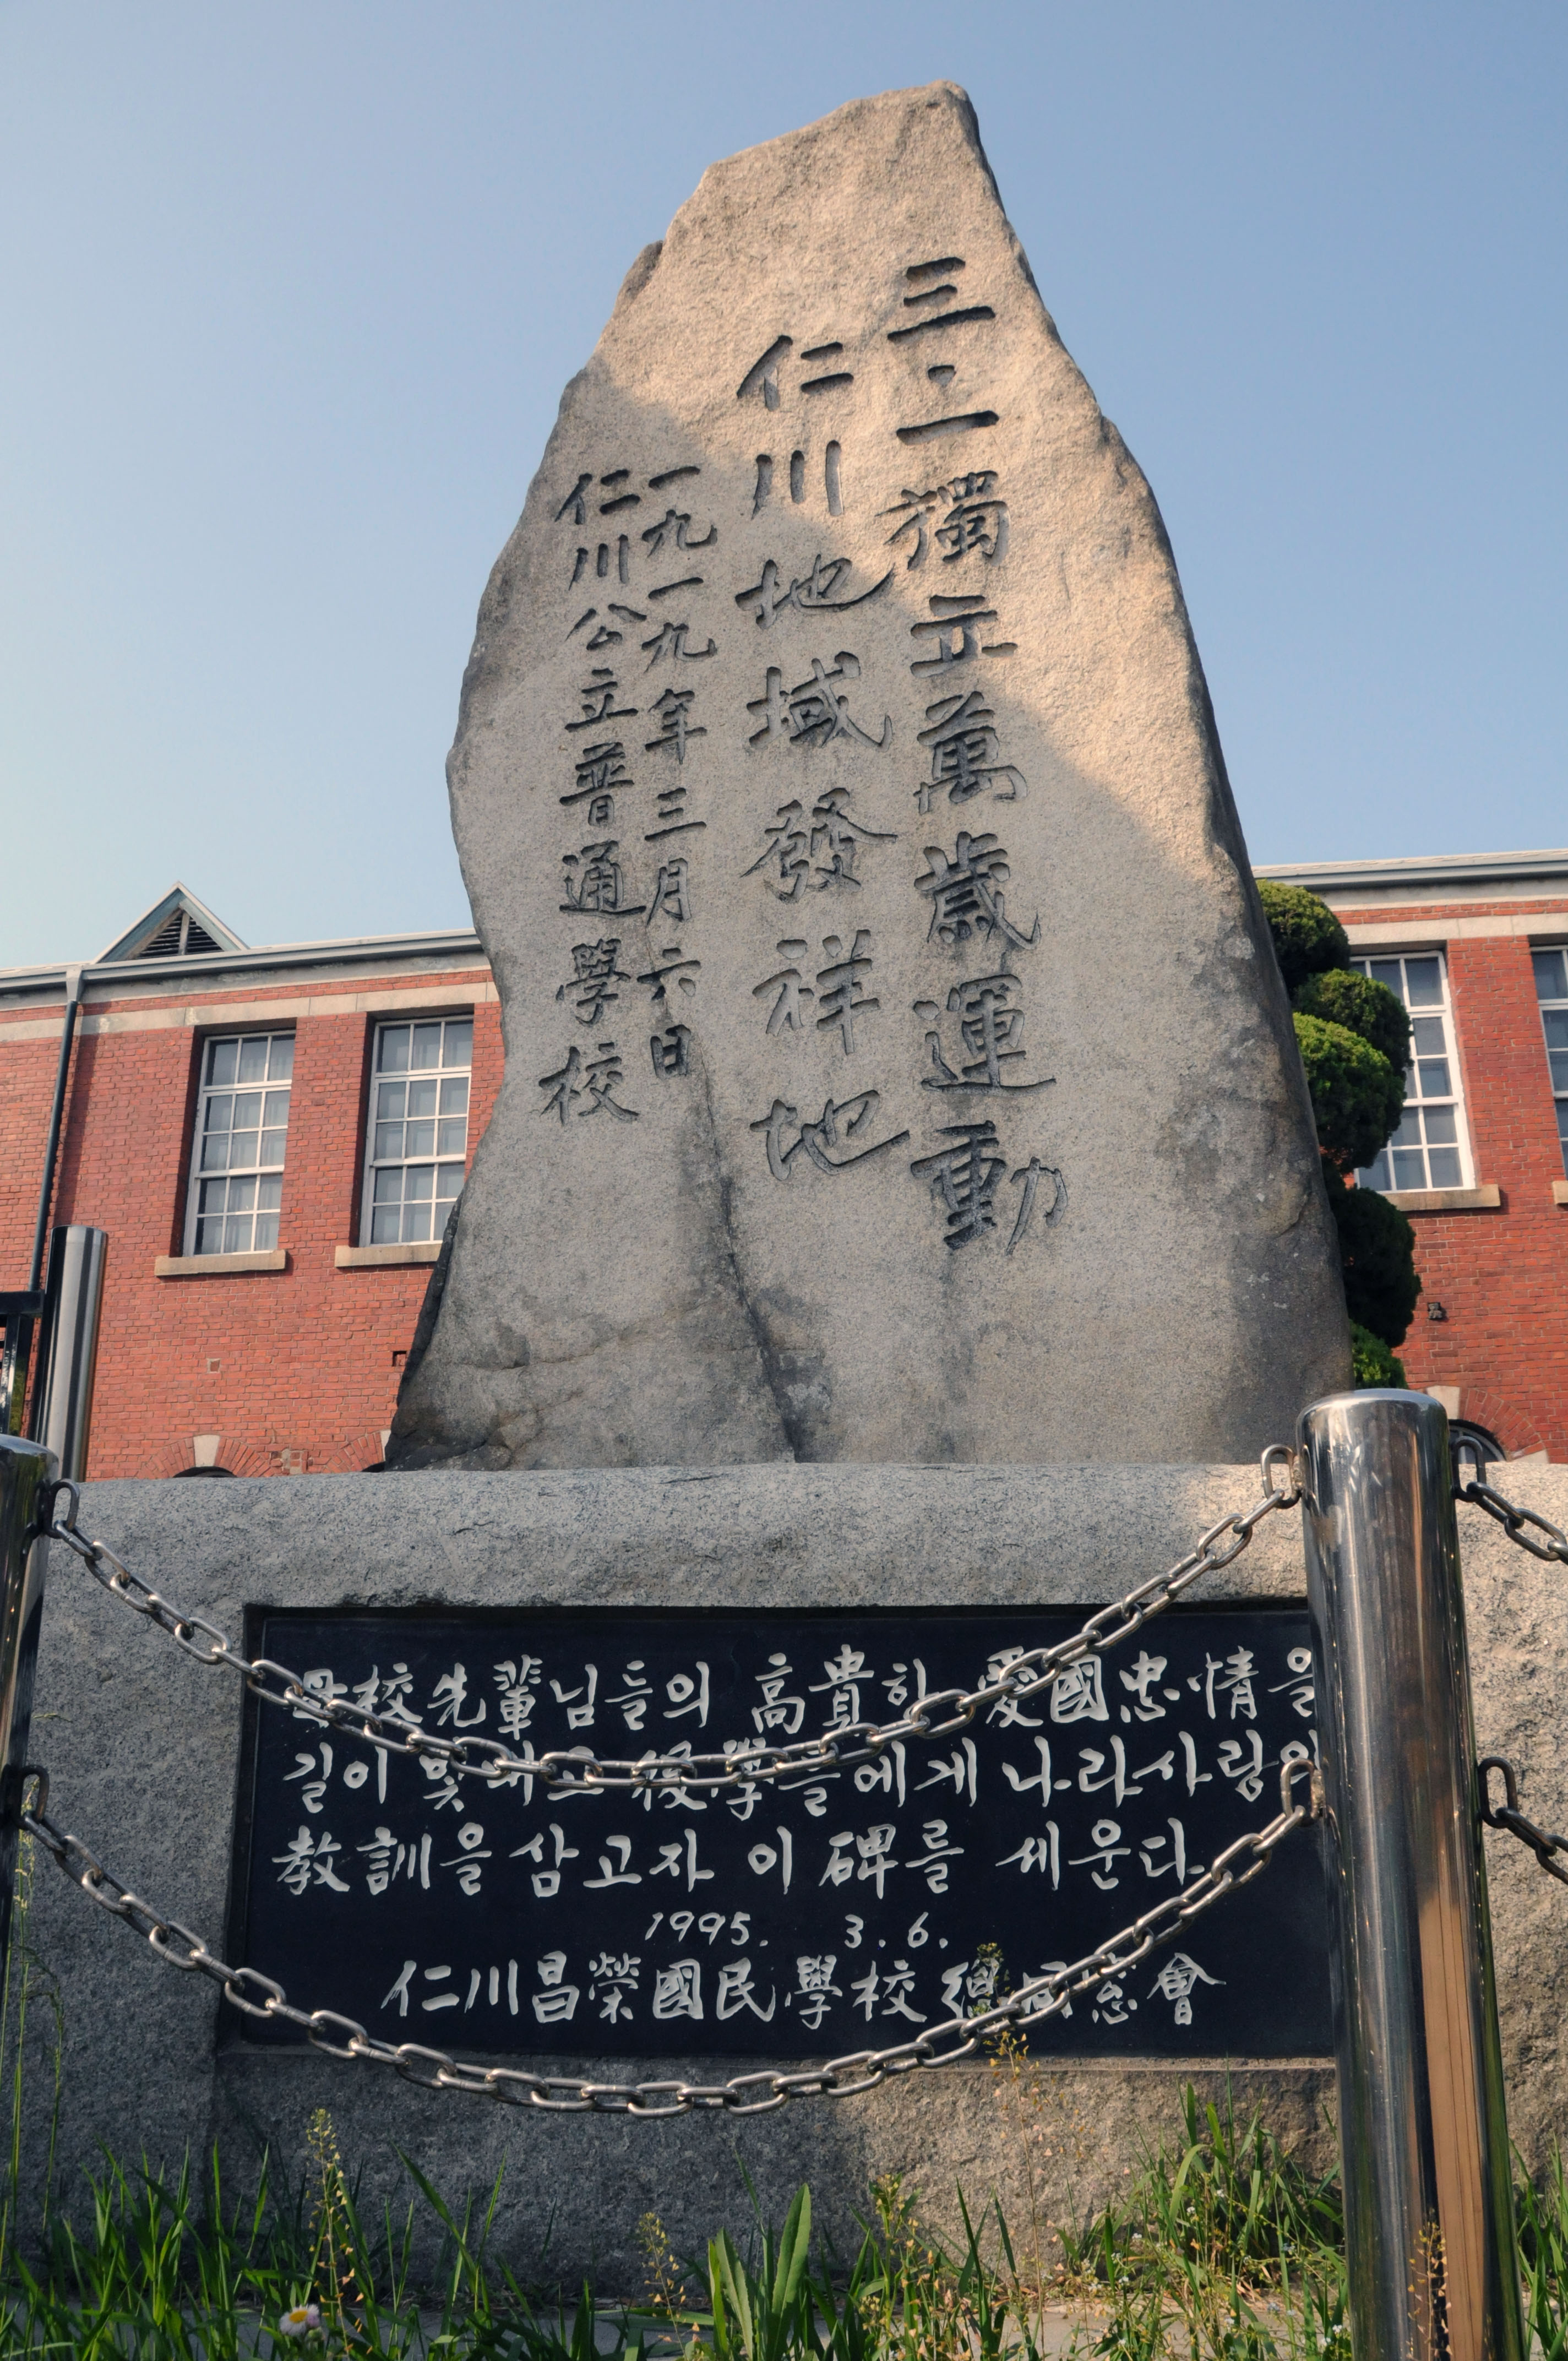 三·一獨立萬歲運動
仁川地域發祥地
一九一九年三月六日
仁川公立普通學校
母校先輩님들의 高貴한 愛國忠情을
길이 빛내고 後學들에게 나라사랑의
敎訓을 삼고자 이 碑를 세운다.
1995. 3. 6.
仁川昌榮國民學校 總同窓會